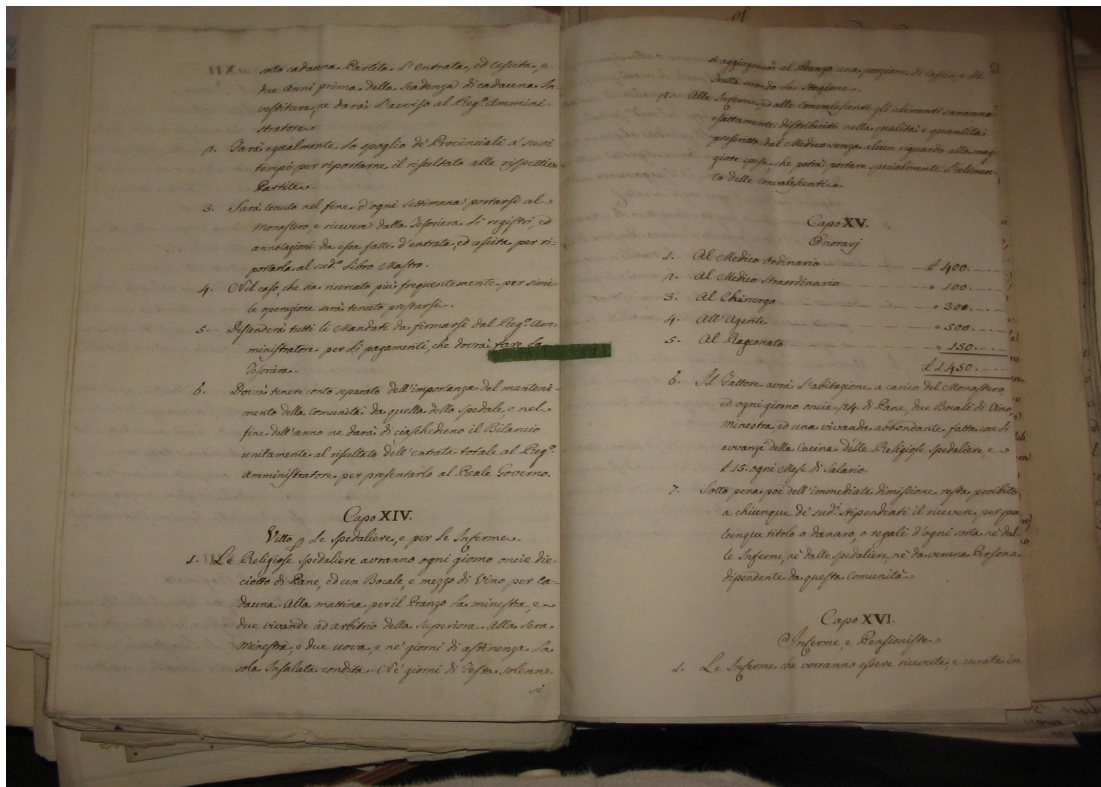 sotto cadauna Partita l'entrata, ed uscita, e
due anni prima della scadenza di cadauna In-
vestitura, ne darà l'avviso al Reg.º Ammini-
stratore.
2. Farà egualmente lo spoglio de' Provinciali a' suoi
tempi per riportarne il risultato alle rispettive
Partite.
3. Sarà tenuto nel fine d'ogni settimana portarsi al
Monastero, e ricevere dalla Tesoriera li registri, ed
annotazioni da essa fatte d'entrata, ed uscita per ri-
portarla al sud.º Libro Mastro.
4. Nel caso, che sia ricercato più frequentemente per simi-
le operazione sarà tenuto prestarsi.
5. Distenderà tutti li Mandati da firmarsi dal Reg.º Am-
ministratore per li pagamenti, che dovrà fare la
Tesoriera.
6. Dovrà tenere conto separato dell'importanza del manteni-
mento della Comunità da quella dello Spedale, e nel
fine dell'anno ne darà di ciascheduno il Bilancio
unitamente al risultato dell'entrata totale al Reg.º
Amministratore per presentarlo al Reale Governo.
Capo XIV.
Vitto p. le Spedaliere, e per le Inferme.
1. Le Religiose Spedaliere avranno ogni giorno oncie die-
ciotto di Pane, ed un Bocale, e mezzo di Vino per ca-
dauna. Alla mattina per il Pranzo la minestra, e
due vivande ad arbitrio della Superiora. Alla sera
Minestra, e due uova, e ne' giorni di astinenza la
sola Insalata condita. Ne' giorni di Festa solenne
si
si aggiugnerà al Pranzo una porzione di
frutta secondo la Stagione.
2. Alle Inferme, ed alle convalescenti gli alimenti saranno
esattamente distribuiti nella qualità e quantità
prescritta dal Medico senza alcun riguardo alla mag-
giore spesa, che potrà portare specialmente l'alimen-
to delle convalescenti.
Capo XV.
Onorarj
1. Al Medico Ordinario £ 400.
2. Al Medico Straordinario " 100.
3. Al Chirurgo " 300.
4. All'Agente " 500.
5. Al Ragionato " 150.
£ 1450.
6. Il Fattore avrà l'abitazione a carico del Monastero,
ed ogni giorno oncie 24 di Pane, due Bocali di Vino,
minestra ed una vivanda abbondante fatta con li
avvanzi della Cucina delle Religiose Spedaliere, e
£ 15. ogni Mese di Salario.
7. Sotto pena poi dell'immediata dimissione resta proibito
a chiunque de' sud.i stipendiati il ricevere per qua-
lunque titolo o danaro, o regali d'ogni sorta nè dal-
le Inferme, nè dalle Spedaliere, nè da veruna Persona
dipendente da questa Comunità.
Capo XVI.
Inferme, e Pensioniste
1. Le Inferme che vorranno essere ricevute, e curate in